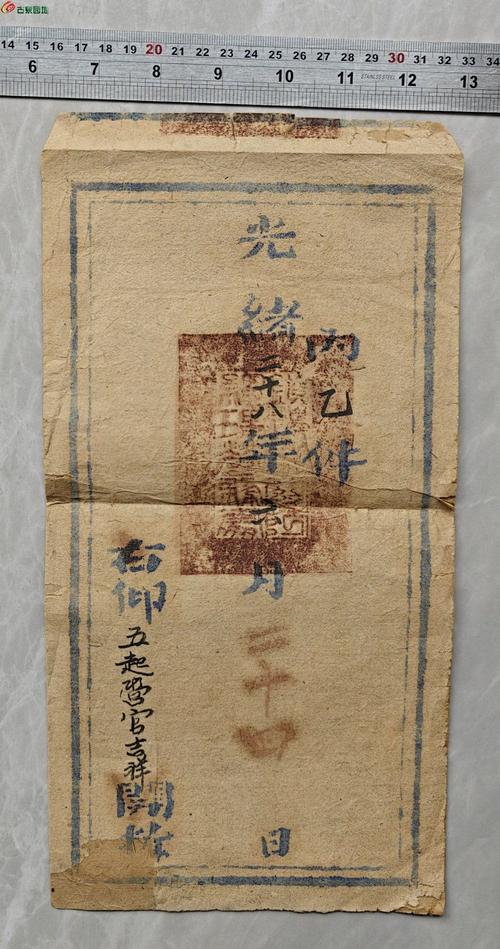 古泉园地
14 15 16 17 18 19 20 21 22 23 24 25 26 27 28 29 30 31 32 33 34
STAINLESS STEEL
6 7 8 9 10 11 12 13
內乙件
光緒二十八年月二十四日
右仰五起營官吉祥開拆